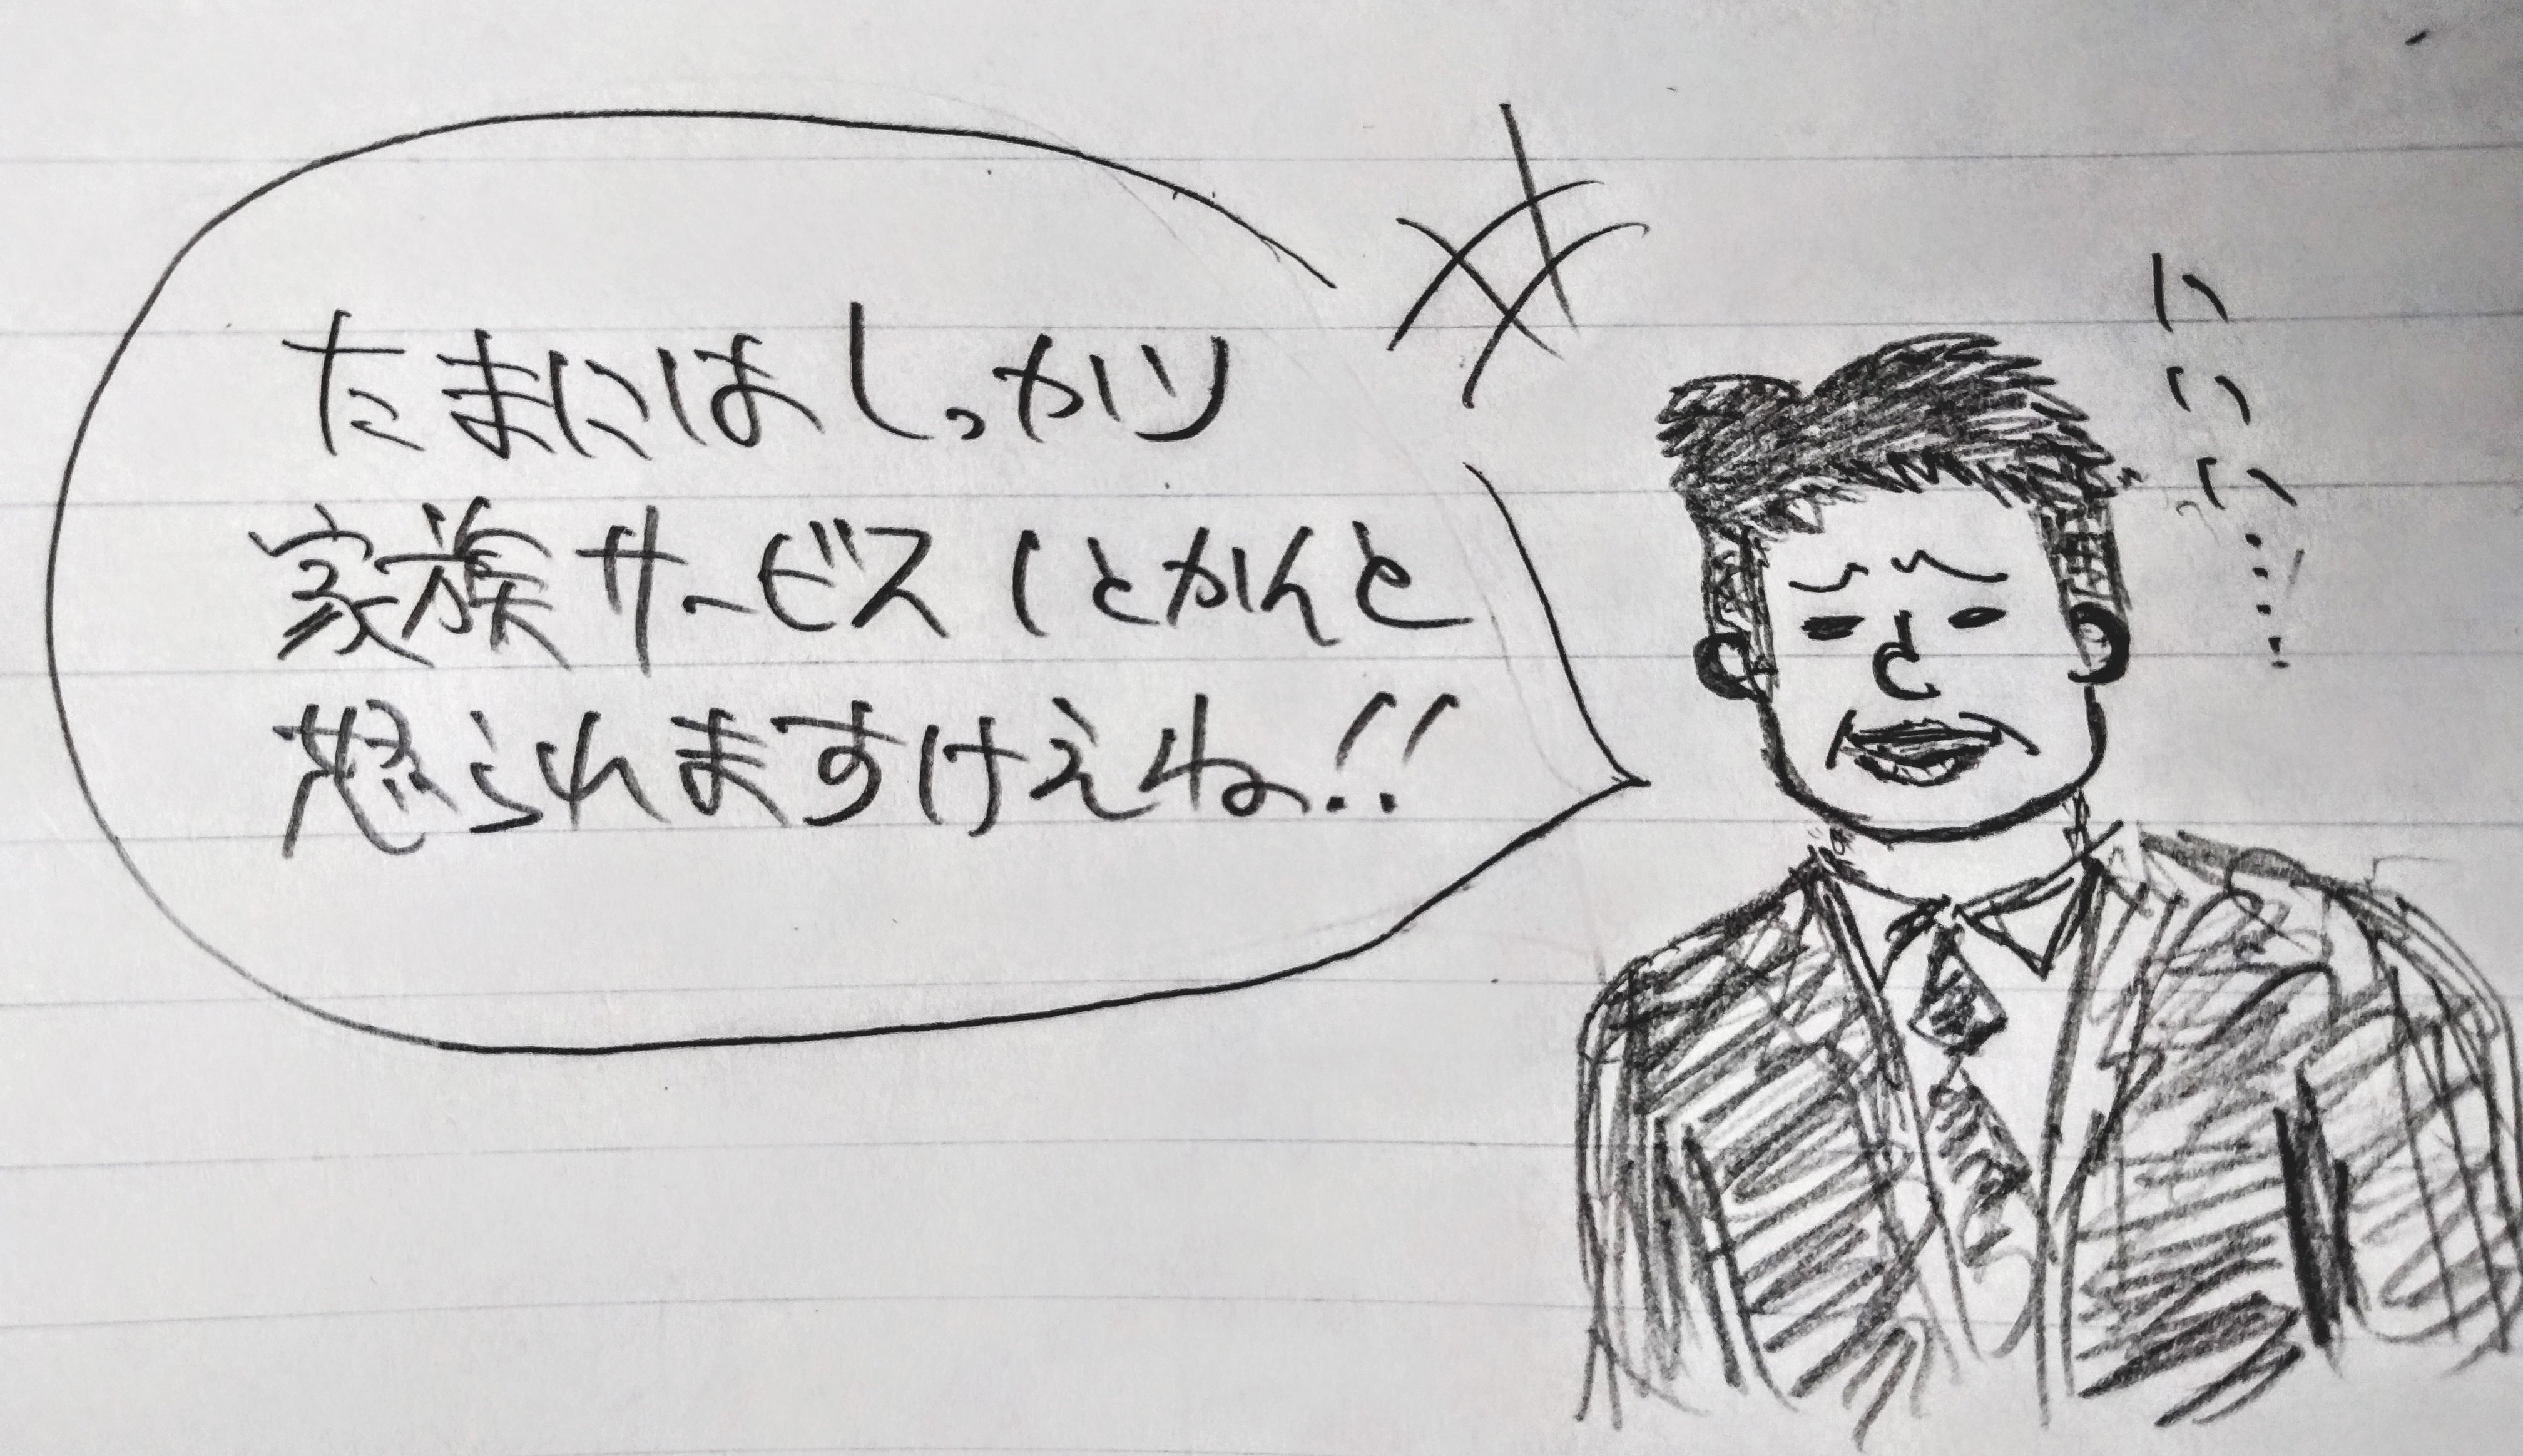 たまにはしっかり
家族サービスしとかんと
怒られますけえね!!
ハハハ…!